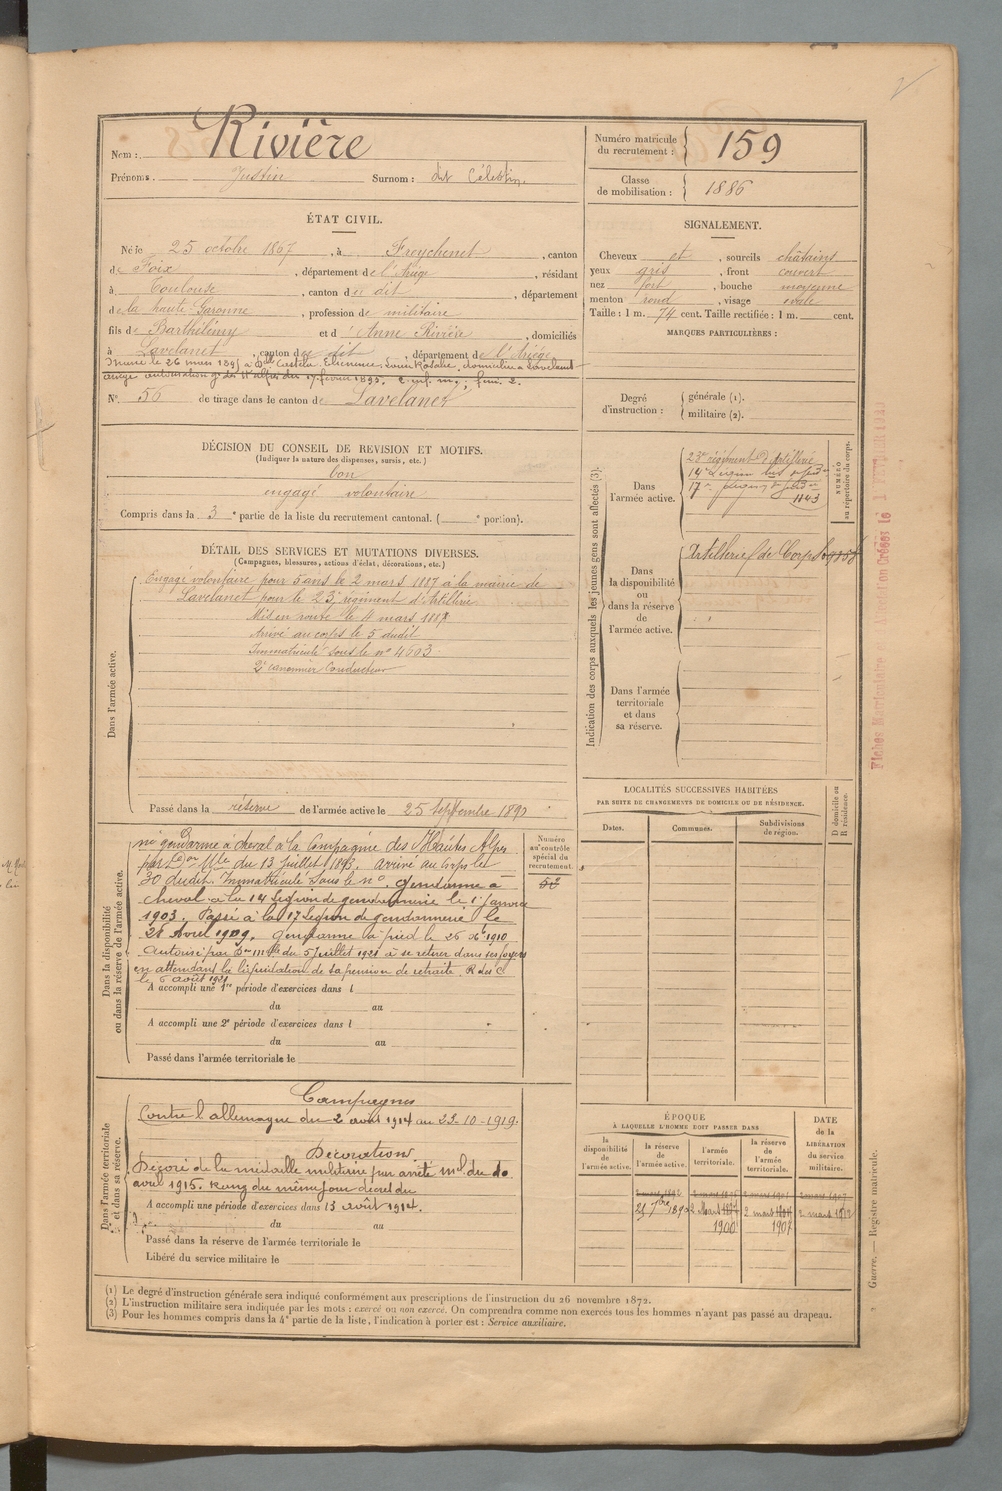 Nom : Rivière
Prénoms. Justin Surnom : dit Célestin.
Numéro matricule du recrutement : 159
Classe de mobilisation : 1886
ÉTAT CIVIL.
Né le 25 octobre 1867, à Freychenet, canton
de Foix, département de l'Ariège, résidant
à Toulouse, canton du dit, département
de la haute Garonne, profession de militaire
fils de Barthélémy et d'Anne Rivière, domiciliés
à Lavelanet, canton du dit, département de l'Ariège
N° 56 de tirage dans le canton de Lavelanet
SIGNALEMENT.
Cheveux et, sourcils châtains
yeux gris, front couvert
nez fort, bouche moyenne
menton rond, visage ovale
Taille : 1 m. 74 cent. Taille rectifiée : 1 m. cent.
MARQUES PARTICULIÈRES :
Degré d'instruction : générale (1).
militaire (2).
DÉCISION DU CONSEIL DE REVISION ET MOTIFS.
(Indiquer la nature des dispenses, sursis, etc.)
bon
engagé volontaire
Compris dans la 3e partie de la liste du recrutement cantonal. ( e portion).
DÉTAIL DES SERVICES ET MUTATIONS DIVERSES.
(Campagnes, blessures, actions d'éclat, décorations, etc.)
Dans l'armée active.
Engagé volontaire pour 5 ans le 2 mars 1887 à la mairie de
Lavelanet pour le 23e régiment d'Artillerie
Mis en route le 4 mars 1887
Arrivé au corps le 5 dudit
Immatriculé sous le n° 4603
2e canonnier Conducteur
Passé dans la réserve de l'armée active le 25 Septembre 1890
Indication des corps auxquels les jeunes gens sont affectés (3).
Dans l'armée active.
23e régiment d'Artillerie
14e Légion
17e
1143
NUMÉRO au répertoire du corps.
Dans la disponibilité ou dans la réserve de l'armée active.
Artillerie
Dans l'armée territoriale et dans sa réserve.
LOCALITÉS SUCCESSIVES HABITÉES
PAR SUITE DE CHANGEMENTS DE DOMICILE OU DE RÉSIDENCE.
Dates. Communes. Subdivisions de région. D domicile ou R résidence.
Dans la disponibilité ou dans la réserve de l'armée active.
Numéro au contrôle spécial du recrutement
gendarme à cheval à la Compagnie des Hautes Alpes
du 13 Juillet 1893. arrivé au Corps le
30 dudit. Immatriculé sous le n°. Gendarme à
cheval à la 14 Légion de gendarmerie le 1er janvier
1903. Passé à la 17 Légion de gendarmerie le
28 Avril 1909. Gendarme à pied le 26 1910
Autorisé par du 5 Juillet 1921 à se retirer dans ses foyers
en attendant la liquidation de sa pension de retraite. R des C
le 6 août 1921
A accompli une 1re période d'exercices dans l
du au
A accompli une 2e période d'exercices dans l
du au
Passé dans l'armée territoriale le
Dans l'armée territoriale et dans sa réserve.
Campagnes
Contre l'allemagne du 2 août 1914 au 23-10-1919.
Décoration
Décoré de la médaille militaire par arrêté mel du 10
avril 1915. Rang du même jour décret du
A accompli une période d'exercices dans 13 août 1914.
du au
Passé dans la réserve de l'armée territoriale le
Libéré du service militaire le
ÉPOQUE
A LAQUELLE L'HOMME DOIT PASSER DANS
la disponibilité de l'armée active.
la réserve de l'armée active.
l'armée territoriale.
la réserve de l'armée territoriale.
DATE de la LIBÉRATION du service militaire.
25 7bre 1890
1900
1907
(1) Le degré d'instruction générale sera indiqué conformément aux prescriptions de l'instruction du 26 novembre 1872.
(2) L'instruction militaire sera indiquée par les mots : exercé ou non exercé. On comprendra comme non exercés tous les hommes n'ayant pas passé au drapeau.
(3) Pour les hommes compris dans la 4e partie de la liste, l'indication à porter est : Service auxiliaire.
Guerre. — Registre matricule.